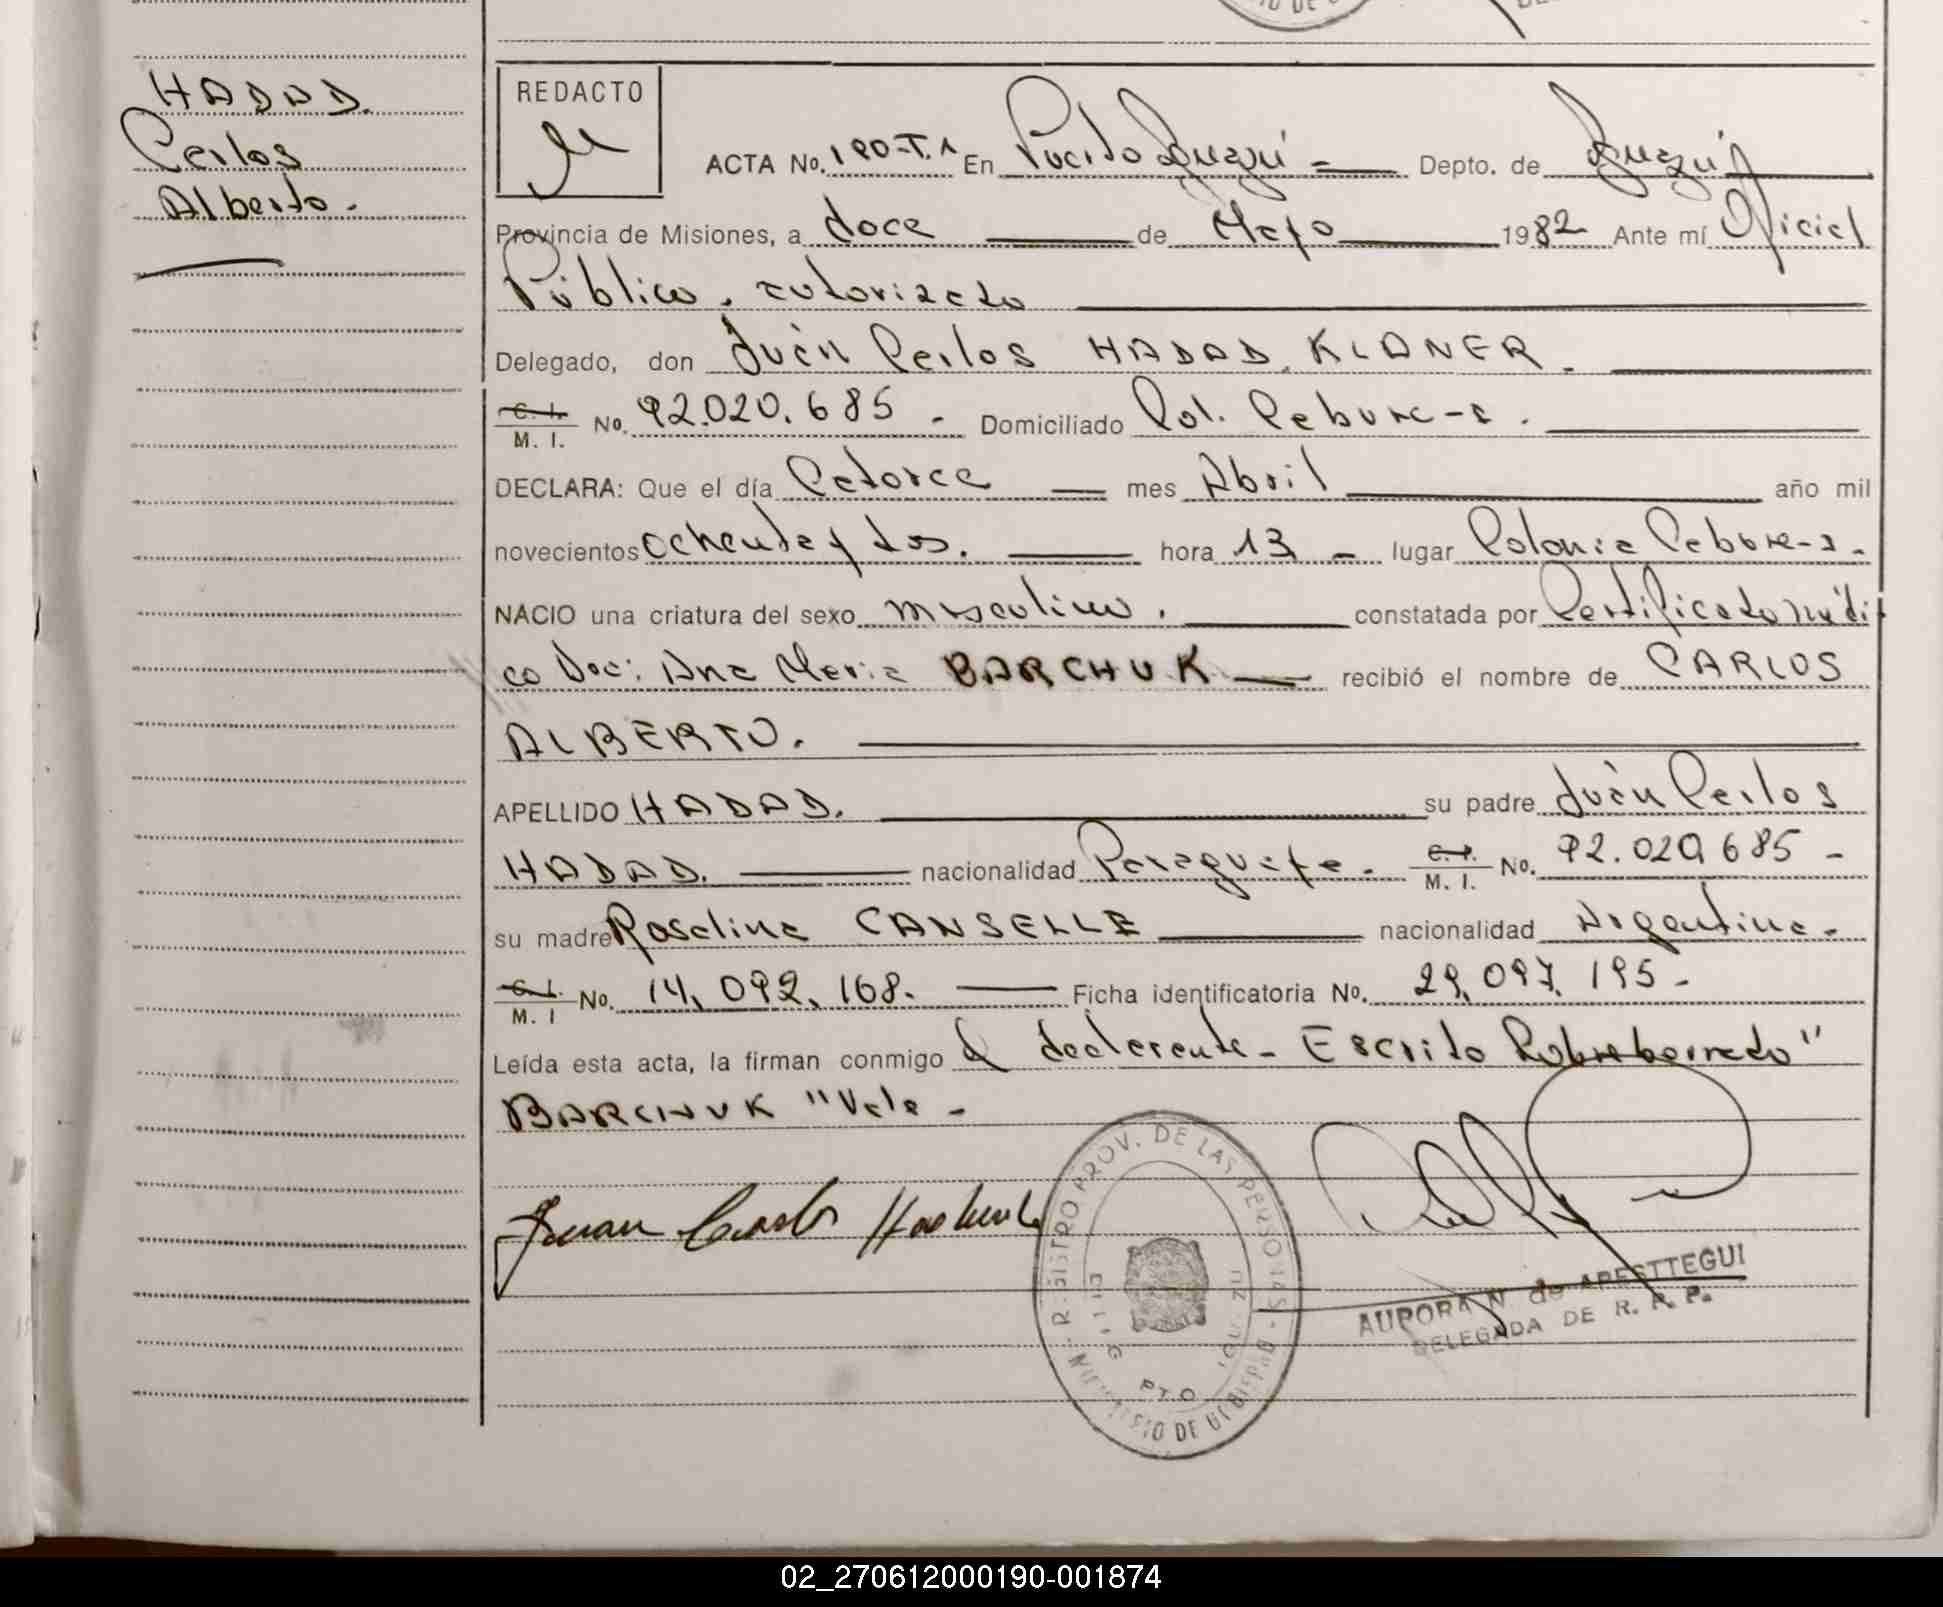 HADAD.
Carlos
Alberto.
REDACTO
ACTA No. 190-T.1 En Puerto Iguazú Depto. de Iguazú
Provincia de Misiones, a doce de Mayo 1982 Ante mí Oficial
Público, autorizado
Delegado, don Juan Carlos HADAD KLANER.
C. I. M. I. No. 92.020.685 - Domiciliado Col. Cabure-i.
DECLARA: Que el día Catorce mes Abril año mil
novecientos ochenta y dos. hora 13 - lugar Colonia Cabure-i.
NACIO una criatura del sexo masculino. constatada por Certificado médi
co Doc: Ana Maria BARCHUK recibió el nombre de CARLOS
ALBERTO.
APELLIDO HADAD. su padre Juan Carlos
HADAD. nacionalidad Paraguaya. C. I. M. I. No. 92.020.685 -
su madre Roselina CANSELLE nacionalidad Argentina.
C. I. M. I No. 14.092.168. Ficha identificatoria No. 29.097.195 -
Leída esta acta, la firman conmigo el declarante - Escrito Sobreborrado"
BARCHUK "Vale -
Juan Carlos
REGISTRO PROV. DE LAS PERSONAS
PTO.
AURORA N. de APESTTEGUI
DELEGADA DE R. P. P.
02_270612000190-001874